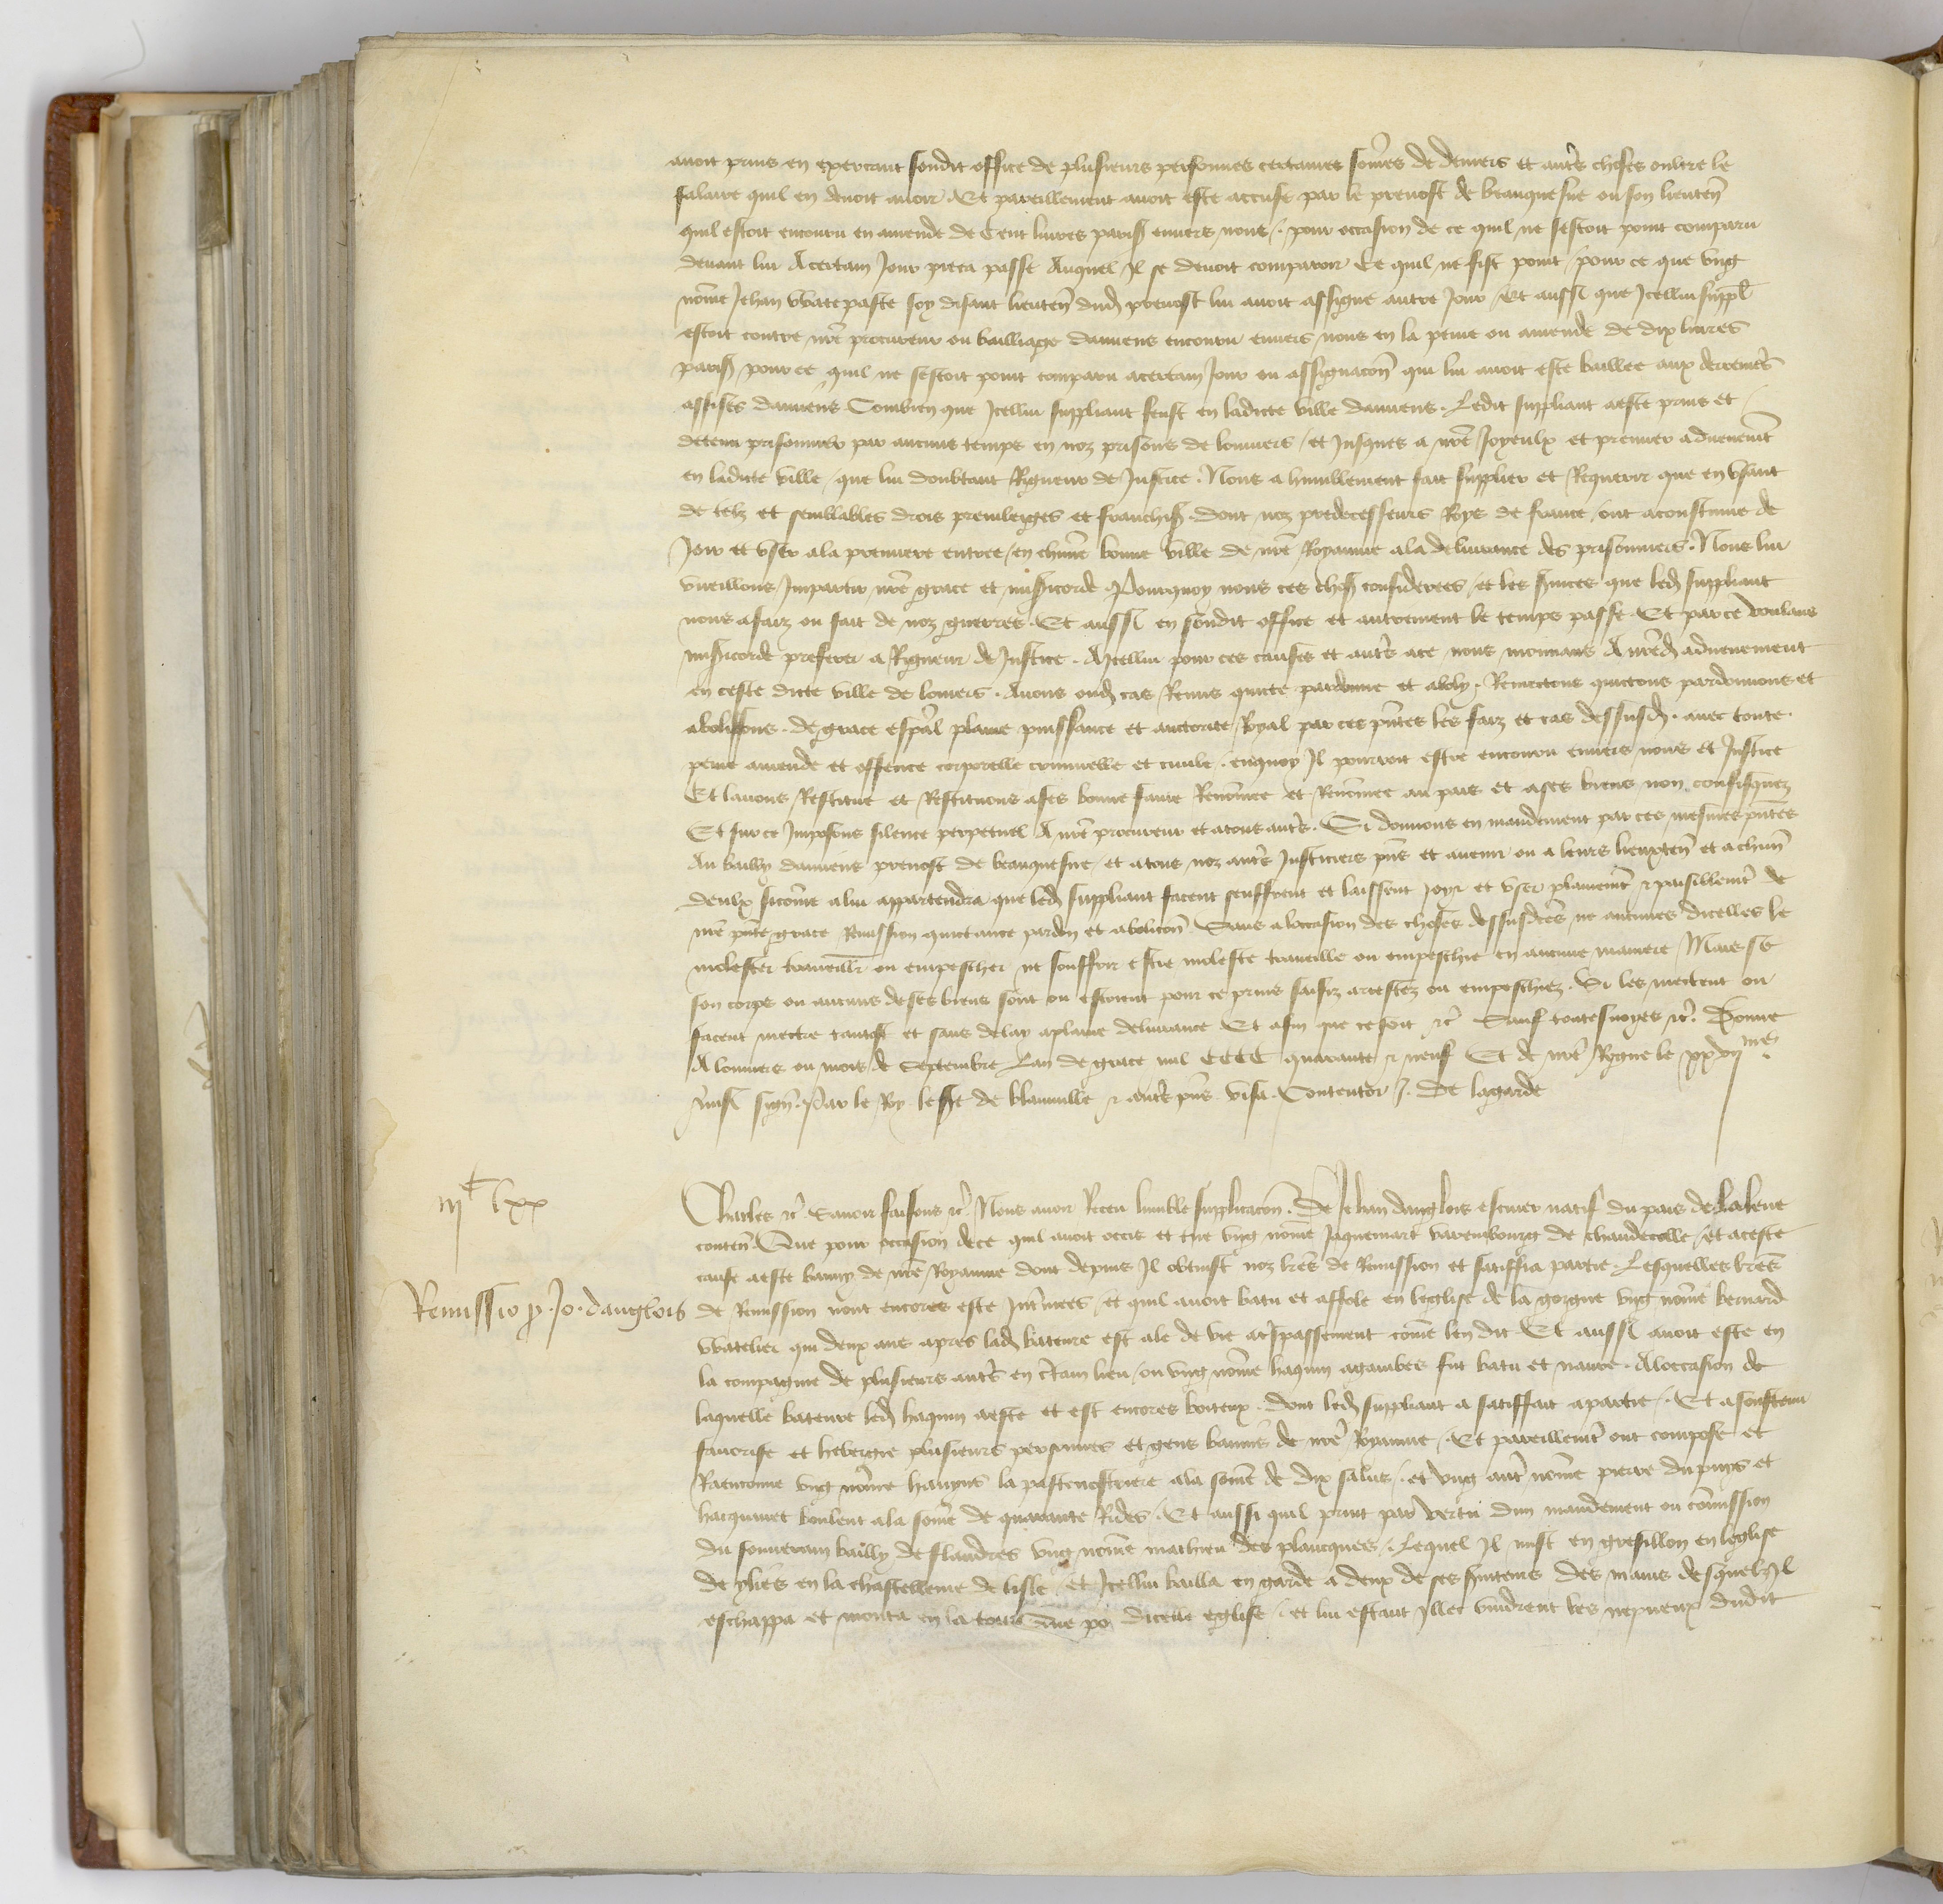 avoit prins en exercant sondit office de plusieurs personnes certaines som̃es de deniers et autr̃s choses oultre le
salaire quil en devoit avoir Et pareillement avoit este accuse par le prevost de beauquesne ou son lieuteñ
quil estoit encouru en amende de Cent livres paris̃ envers nous / pour occasion de ce quil ne sestoit point comparu
devant lui A certain Jour pieca passe Auquel Il se devoit comparoir Ce quil ne fist point / pour ce que ung
nom̃e Jehan Watepaste soy disant lieuteñ dud̃ prevost lui avoit assigne autre Jour Et aussi que Icellui suppl̃
estoit contre nr̃e procureur ou bailliage damiens encouru envers nous en la peine ou amende de dix livres
paris̃ pour ce quil ne sestoit point comparu a certain Jour ou assignacoñ qui lui avoit este baillee aux derrenier̃s
assises damiens Combien que Icellui suppliant feust en ladicte ville damiens . Ledit suppliant a este prins et
detenu prisonnier par aucuns temps en noz prisons de louviers / et Jusques a nr̃e Joyeulx et premier advenem̃t
en ladicte ville / que lui doubtant Rigueur de Justice . Nous a humblement fait supplier et Requerir que en usant
de telz et semblables drois previleiges et franchis̃ dont noz predecesseurs Roys de france / ont acoustume de
Joir et user a la premiere entree / en chũne bonne ville de nr̃e Royaume a la delivrance des prisonniers . Nous lui
vueillons Impartir nr̃e grace et mis̃icorde Pourquoy nous ces chos̃ considerees / et les s̃vices que led̃ suppliant
nous a faiz ou fait de noz guerres . Et aussi en sondit office et autrement le temps passe . Et par ce voulans
mis̃icorde preferer a Rigueur de Justice . A Icellui pour ces causes et autr̃s a ce nous mouvans A nr̃ed̃ advenement
en ceste dicte ville de loviers . Avons oud̃ cas Remis quicte pardonne et aboly . Remectons quictons pardonnons et
abolissons . de grace esp̃al plaine puissance et auctorite Royal par ces pñtes les faiz et cas dessusd̃ . avec toute
peine amende et offence corporelle criminelle et civile / enquoy Il pourroit estre encouru envers nous et Justice
Et lavons Restitue et Restituons a ses bonne fame Renom̃ee et Renom̃ee au pais et a ses biens non confisquez
Et sur ce Imposons silence perpetuel A nr̃e procureur et a tous autr̃s . Si donnons en mandement par ces mesmes pñtes
Au bailly damiens prevost de beauquesne / et a tous noz autr̃s Justiciers pñs et avenir ou a leurs lieuxteñ et a chũn
deulx sicom̃e a lui appartendra que led̃ suppliant facent seuffrent et laissent Joyr et user plainem̃t & paisiblem̃t de
nr̃e pñte grace Remission quictance pardon et abolicoñ Sans a loccasion des choses dessusdc̃es ne aucunes dicelles le
molester travaillr̃ ou empescher ne souffrir estre moleste travaille ou empeschie en aucune maniere / Mais se
son corps ou aucuns de ses biens sont ou estoient pour ce prins saisiz arrestez ou empeschiez . Si les mectent ou
facent mectre tantost et sans delay a plaine delivrance Et afin que ce soit &c̃ Sauf toutesvoyes &c̃ . Donne
A louviers ou mois de Septembre Lan de grace mil CCCC quarante & neuf Et de nr̃e Regne le xxvii me
Ainsi sigñ . Par le Roy le s̃re de blainville & autr̃s pñs visa . Contentor / . De lagarde
iij c lxx
Charles &c̃ Savoir faisons &c̃ Nous avoir Receu humble supplicacoñ . De Jehan danglois escuier natif du pais de lalleue
conteñ . Que pour occasion de ce quil avoit occis et tue ung nom̃e Jaquemart varembourg de chaudecolle / et a ceste
cause a este banny de nr̃e Royaume dont depuis Il obtinst noz lr̃es de Remission et satiffia partie . Lesquelles lr̃es
Remissio p . Jo . danglois
de Remission nont encores este Int̃inees / et quil avoit batu et affole en leglise de la gorgue ung nom̃e bernard
Watelier qui deux ans apres lad̃ bateure est ale de vie a t̃spassement com̃e len dit Et aussi avoit este en
la compagnie de plusieurs autr̃s en c̃tain lieu / ou ung nom̃e haquin agambes fut batu et navre . A loccasion de
laquelle bateure led̃ haquin a este et est encores boiteux . dont led̃ suppliant a satiffait a partie / . Et a soustenu
favorise et hebergie plusieurs personnes et gens bannis de nr̃e Royaume / Et pareillem̃t ont compose et
Raenconne ung nom̃e hanyns la pastenostriere a la som̃e de dix salus / . et ung autr̃ nom̃e pierre du puys et
hacquinet boulent a la som̃e de quarante Rides / Et aussi quil print par vertu dun mandement ou com̃ission
du souverain bailly de flandres ung nom̃e mathieu des plancques / Lequel Il mist en gresillon en leglise
de ylies en la chastellenie de lisle / et Icellui bailla en garde a deux de ses s̃viteurs des mains desquelz Il
eschappa et monta en la tour dicelle eglise / . et lui estant Illec vindrent les nepveux dudit